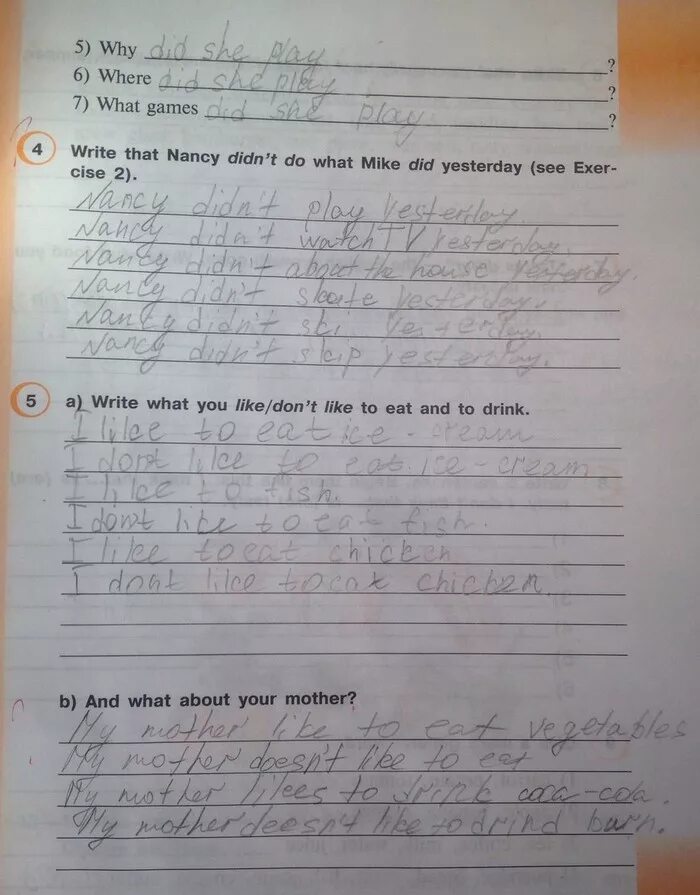 5) Why did she play ?
6) Where did she play ?
7) What games did she play ?
4 Write that Nancy didn't do what Mike did yesterday (see Exer-
cise 2).
Nancy didn't play yesterday.
Nancy didn't watch TV yesterday.
Nancy didn't about the house yesterday.
Nancy didn't skate yesterday.
Nancy didn't ski yesterday.
Nancy didn't skip yesterday.
5 a) Write what you like/don't like to eat and to drink.
I like to eat ice-cream
I dont like to eat ice-cream
I like to fish.
I dont like to eat fish.
I like to eat chicken
I dont like to eat chicken.
b) And what about your mother?
My mother like to eat vegetables
My mother doesn't like to eat
My mother likes to drink coca-cola.
My mother deesn't like to drind